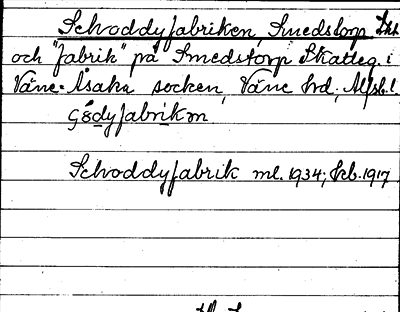 Schoddyfabriken, Smedstorp Eks
och "fabrik" på Smedstorp Skatteg. i
Väne-Åsaka socken, Väne hd, Älfsb. l
dyfabrikm
Schoddyfabrik ml. 1934; Ekb. 1917